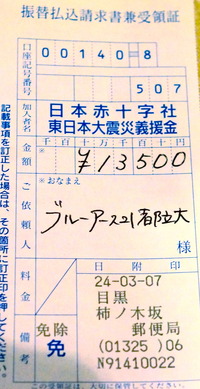 振替払込請求書兼受領証
口座記号番号
00140=8
507
加入者名
日本赤十字社
東日本大震災義援金
金額
千百十万千百十円
¥13500
ご依頼人
※おなまえ
ブルーアース21都立大
様
料金
日附印
24-03-07
目黒
柿ノ木坂
郵便局
(01325)06
N91410022
備考
免除
免
記載事項を訂正した場合は、その箇所に訂正印を押してください。
この受領証は、大切に保管してください。